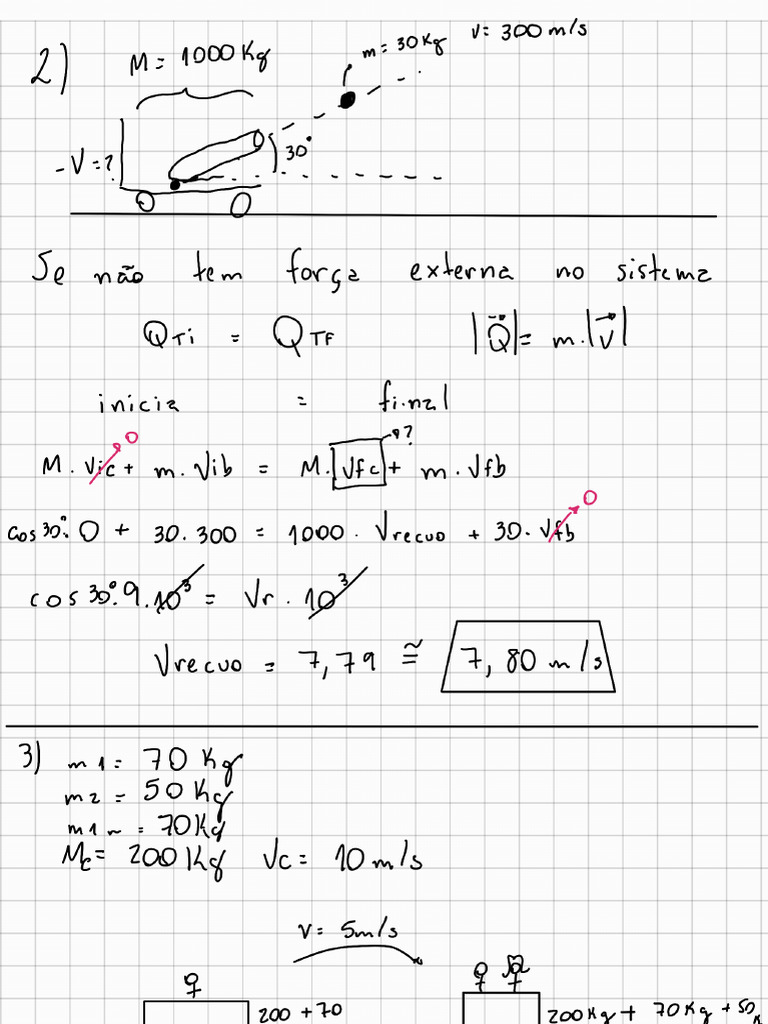 2)
M = 1000 Kg
m = 30 Kg
V = 300 m/s
- V = ?
30°
Se não tem força externa no sistema
QTi = QTF |Q⃗| = m.|V⃗|
inicia = final
M. Vic + m. Vib = M. Vfc + m. Vfb
0
?
cos30°. 0 + 30. 300 = 1000. Vrecuo + 30. Vfb
0
cos 30°. 9. 10³ = Vr. 10³
Vrecuo = 7,79 ≅ 7,80 m/s
3) m1 = 70 Kg
m2 = 50 Kg
= 70Kg
Mc = 200 Kg Vc = 10 m/s
V = 5m/s
200 + 70
200 Kg + 70 Kg + 50